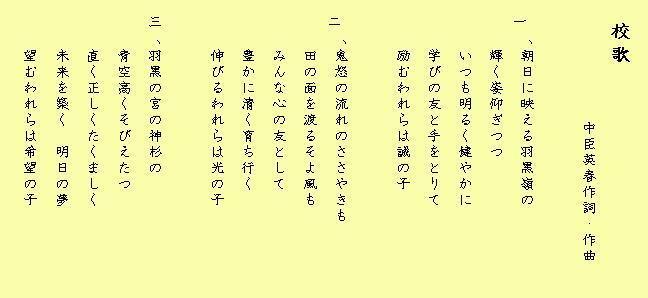 校歌
中臣英春作詞・作曲
一、朝日に映える羽黒嶺の
輝く姿仰ぎつつ
いつも明るく健やかに
学びの友と手をとりて
励むわれらは誠の子
二、鬼怒の流れのささやきも
田の面を渡るそよ風も
みんな心の友として
豊かに清く育ち行く
伸びるわれらは光の子
三、羽黒の宮の神杉の
青空高くそびえたつ
直く正しくたくましく
未来を築く 明日の夢
望むわれらは希望の子